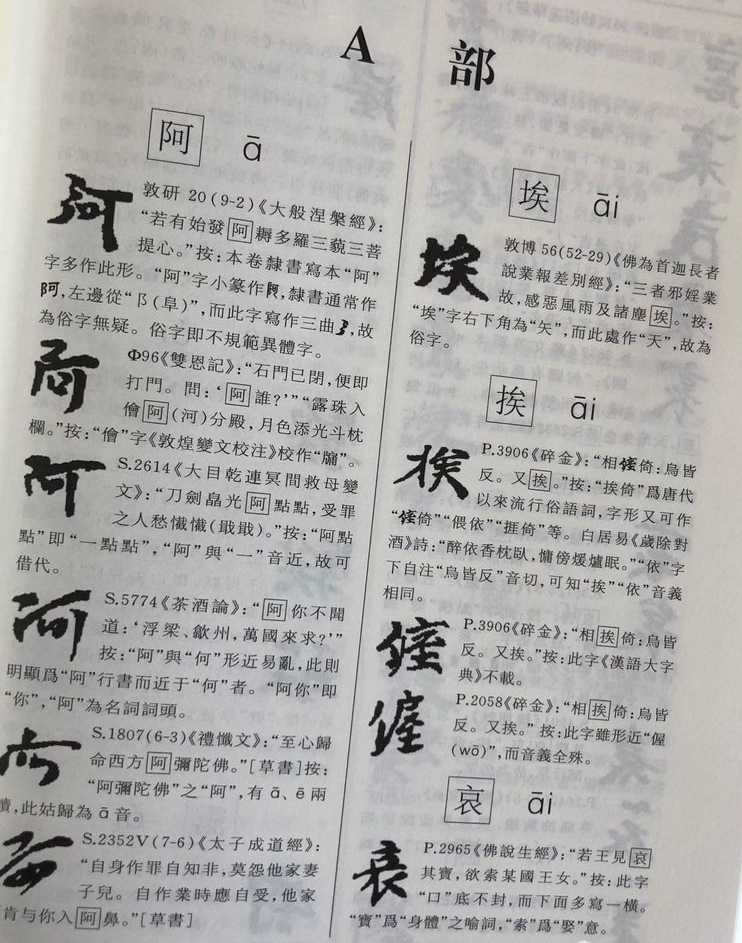 A 部
阿 ā
敦研 20(9-2)《大般涅槃經》:
“若有始發阿耨多羅三藐三菩
提心。”按:本卷隸書寫本“阿”
字多作此形。“阿”字小篆作阿,隸書通常作
阿,左邊從“阝(阜)”,而此字寫作三曲,故
為俗字無疑。俗字即不規範異體字。
Ф96《雙恩記》:“石門已閉,便即
打門。問:‘阿誰?’”“露珠入
儈阿(河)分殿,月色添光斗枕
欄。”按:“儈”字《敦煌變文校注》校作“牖”。
S.2614《大目乾連冥間救母變
文》:“刀劍皛光阿點點,受罪
之人愁懺懺(戢戢)。”按:“阿點
點”即“一點點”,“阿”與“一”音近,故可
借代。
S.5774《茶酒論》:“阿你不聞
道:‘浮梁、歙州,萬國來求?’”
按:“阿”與“何”形近易亂,此則
明顯爲“阿”行書而近于“何”者。“阿你”即
“你”,“阿”為名詞詞頭。
S.1807(6-3)《禮懺文》:“至心歸
命西方阿彌陀佛。”[草書]按:
“阿彌陀佛”之“阿”,有 ā、ē 兩
讀,此姑歸為 ā 音。
S.2352V(7-6)《太子成道經》:
“自身作罪自知非,莫怨他家妻
子兒。自作業時應自受,他家
肯与你入阿鼻。”[草書]
埃 āi
敦博 56(52-29)《佛為首迦長者
說業報差別經》:“三者邪婬業
故,感惡風雨及諸塵埃。”按:
“埃”字右下角為“矢”,而此處作“天”,故為
俗字。
挨 āi
P.3906《碎金》:“相倚:烏皆
反。又挨。”按:“挨倚”爲唐代
以來流行俗語詞,字形又可作
“倚”“偎依”“捱倚”等。白居易《歲除對
酒》詩:“醉依香枕臥,慵傍煖爐眠。”“依”字
下自注“烏皆反”音切,可知“挨”“依”音義
相同。
P.3906《碎金》:“相挨倚:烏皆
反。又挨。”按:此字《漢語大字
典》不載。
P.2058《碎金》:“相挨倚:烏皆
反。又挨。”按:此字雖形近“偓
(wò)”,而音義全殊。
哀 āi
P.2965《佛說生經》:“若王見哀
其寶,欲索某國王女。”按:此字
“口”底不封,而下面多寫一橫。
“寶”爲“身體”之喻詞,“索”爲“娶”意。